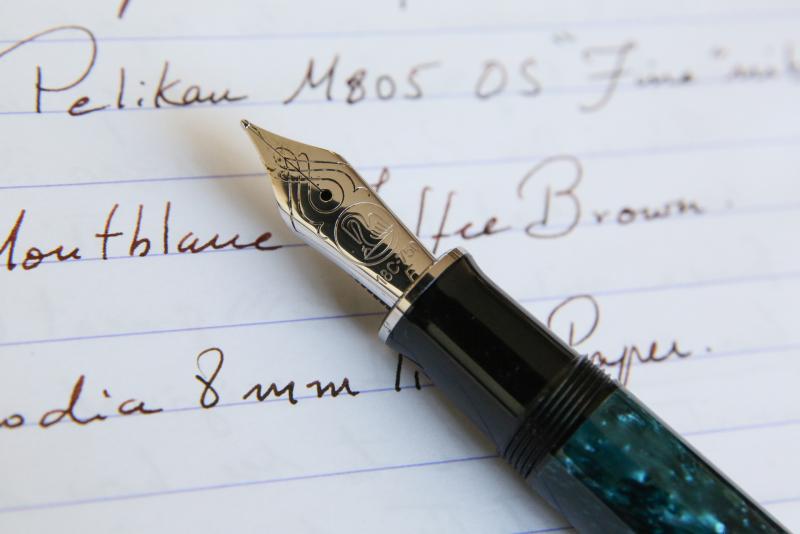 Pelikan M805 OS "Fine" nib
Montblanc Toffee Brown.
Rhodia 8mm Paper.
18C-750
F